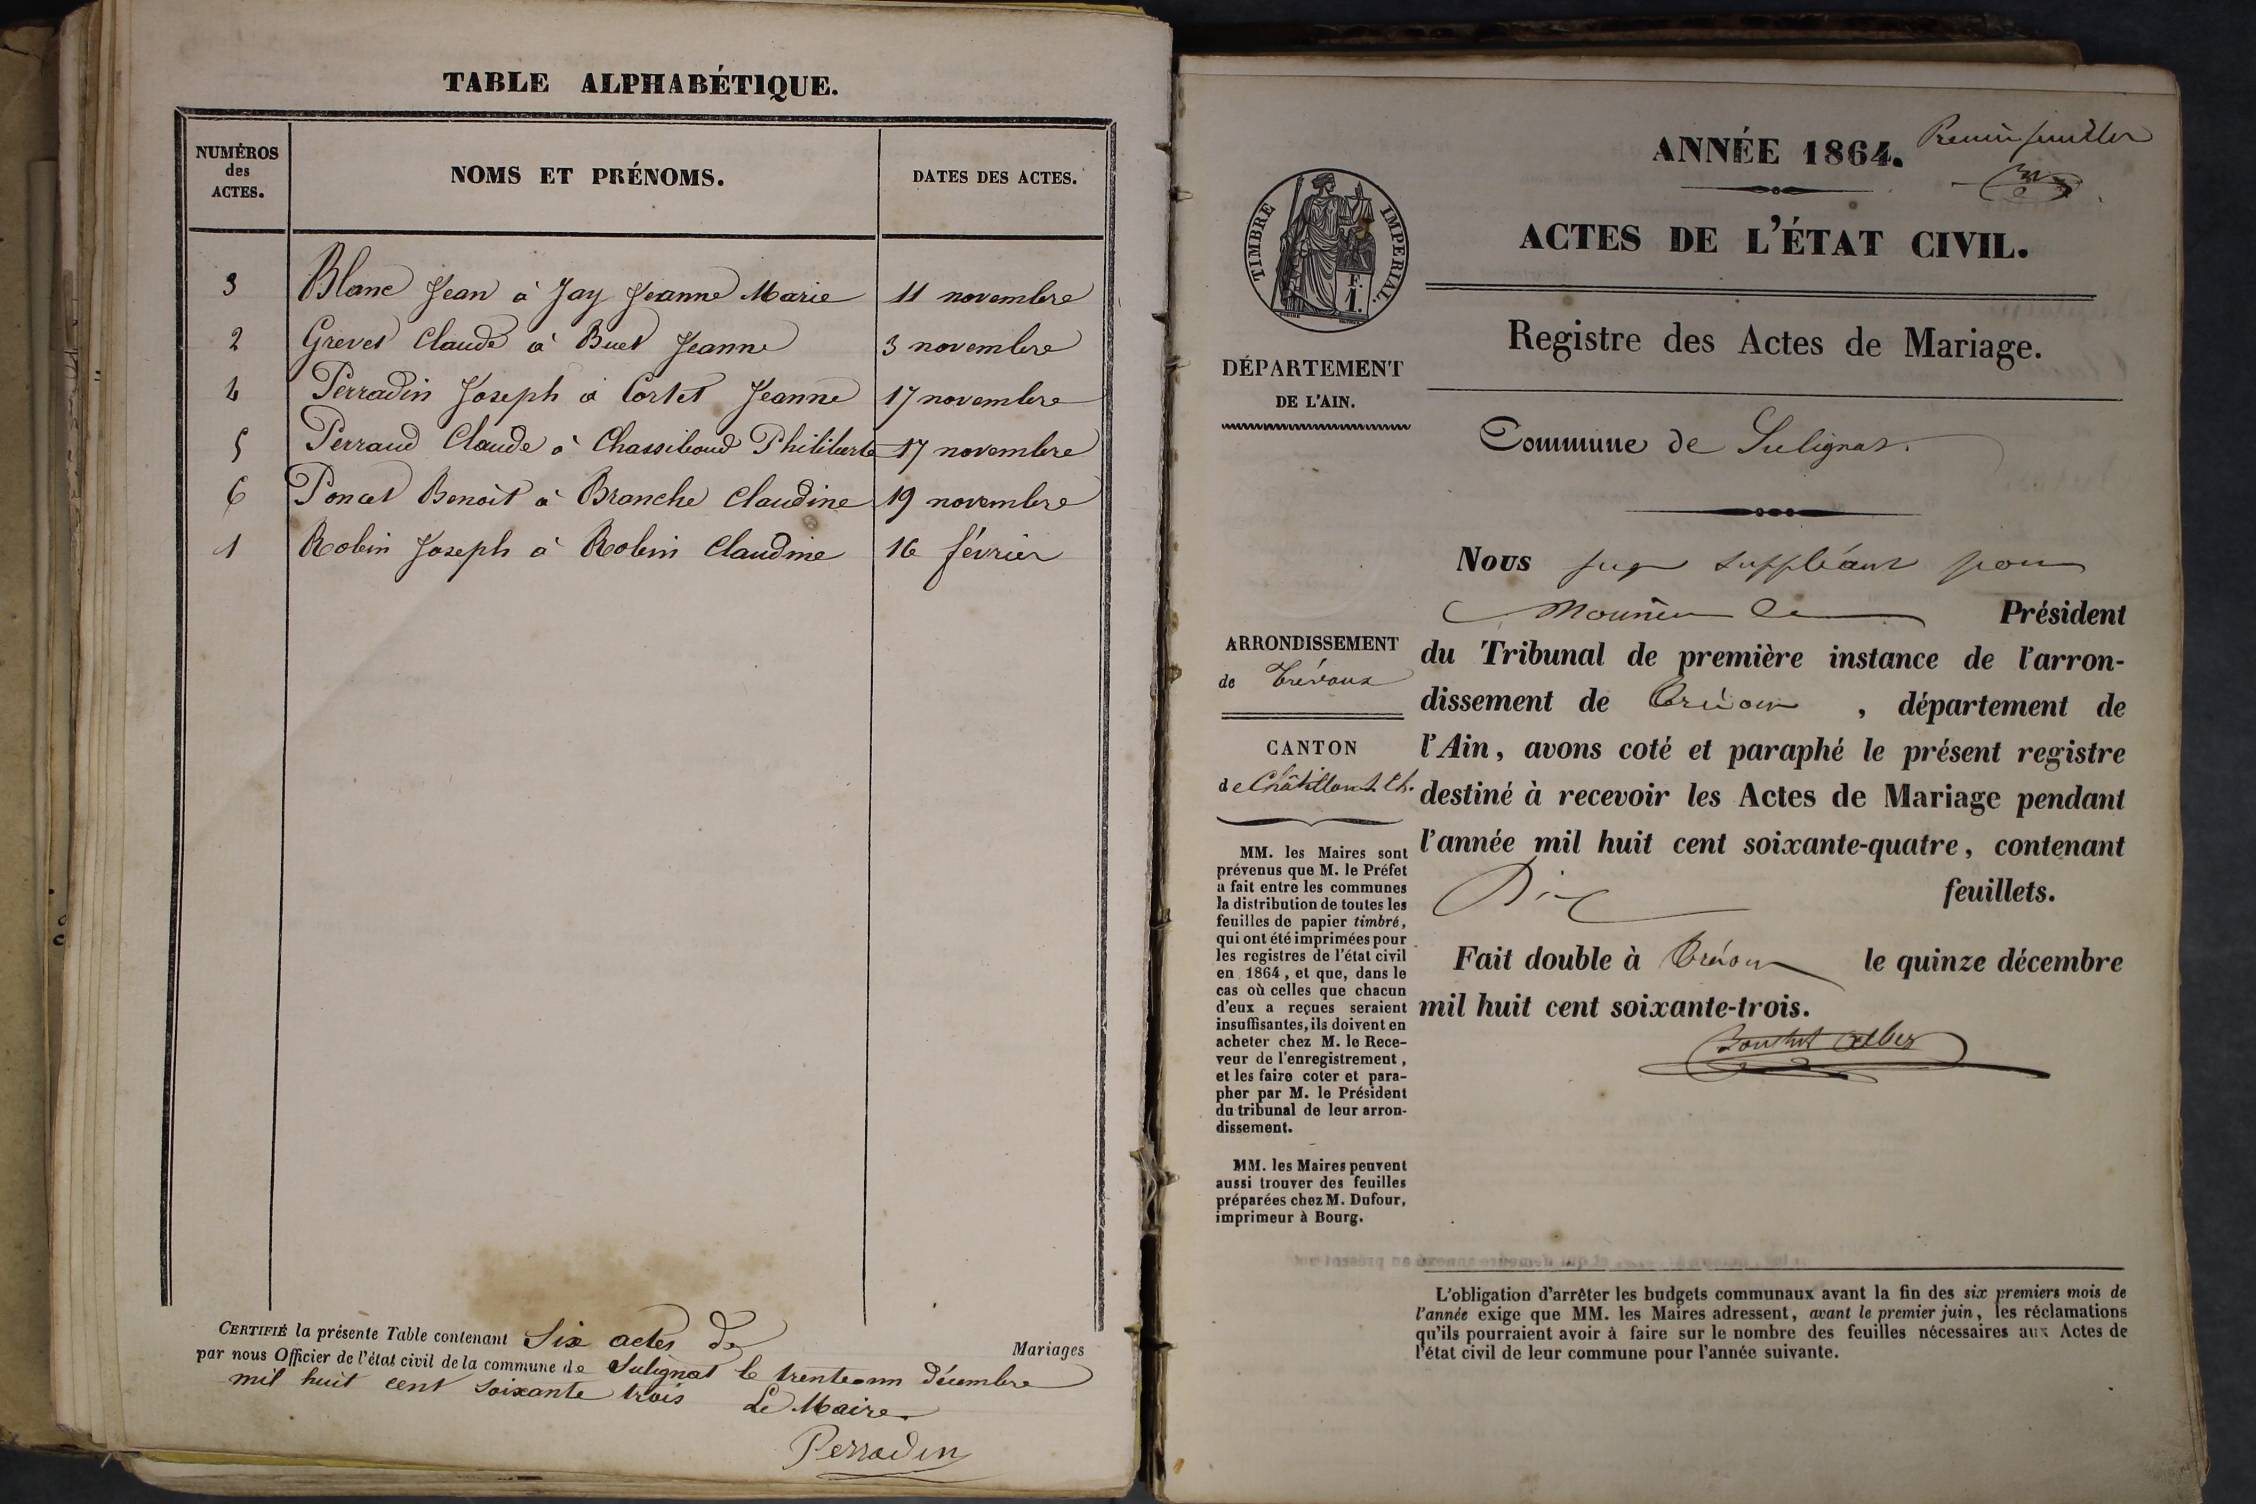 TABLE ALPHABÉTIQUE.
NUMÉROS
des
ACTES.
NOMS ET PRÉNOMS.
DATES DES ACTES.
3 Blanc Jean à Jay Jeanne Marie 11 novembre
2 Grevet Claude à Buet Jeanne 3 novembre
4 Perradin Joseph à Cortet Jeanne 17 novembre
5 Perraud Claude à Chassiboud Philiberte 17 novembre
6 Poncet Benoît à Branche Claudine 19 novembre
1 Robin Joseph à Robin Claudine 16 février
CERTIFIÉ la présente Table contenant Six actes de Mariages
par nous Officier de l'état civil de la commune de Sulignat le trente un décembre
mil huit cent soixante trois Le Maire
Perradin
Premier feuillet
ANNÉE 1864.
ACTES DE L'ÉTAT CIVIL.
Registre des Actes de Mariage.
Commune de Sulignat.
TIMBRE IMPERIAL.
F.
1.
DÉPARTEMENT
DE L'AIN.
ARRONDISSEMENT
de Trévoux
CANTON
de Châtillon s. Ch.
MM. les Maires sont
prévenus que M. le Préfet
a fait entre les communes
la distribution de toutes les
feuilles de papier timbré,
qui ont été imprimées pour
les registres de l'état civil
en 1864, et que, dans le
cas où celles que chacun
d'eux a reçues seraient
insuffisantes, ils doivent en
acheter chez M. le Rece-
veur de l'enregistrement,
et les faire coter et para-
pher par M. le Président
du tribunal de leur arron-
dissement.
MM. les Maires peuvent
aussi trouver des feuilles
préparées chez M. Dufour,
imprimeur à Bourg.
Nous juge suppléant pour
Monsieur le Président
du Tribunal de première instance de l'arron-
dissement de Trévoux, département de
l'Ain, avons coté et paraphé le présent registre
destiné à recevoir les Actes de Mariage pendant
l'année mil huit cent soixante-quatre, contenant
Dix feuillets.
Fait double à Trévoux le quinze décembre
mil huit cent soixante-trois.
L'obligation d'arrêter les budgets communaux avant la fin des six premiers mois de
l'année exige que MM. les Maires adressent, avant le premier juin, les réclamations
qu'ils pourraient avoir à faire sur le nombre des feuilles nécessaires aux Actes de
l'état civil de leur commune pour l'année suivante.